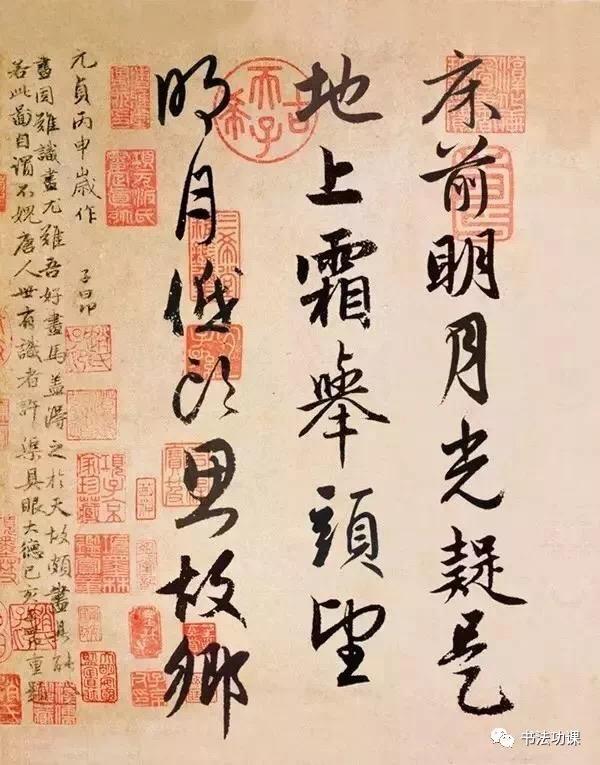 床前明月光疑是
地上霜舉頭望
明月低頭思故鄉
元貞丙申歲作 子昂
畫固難識畫尤難吾好畫馬蓋得之於天故頗盡其能
若此圖自謂不愧唐人世有識者許渠具眼大德己亥子昂重題
古希天子
項子京家珍藏
书法功课